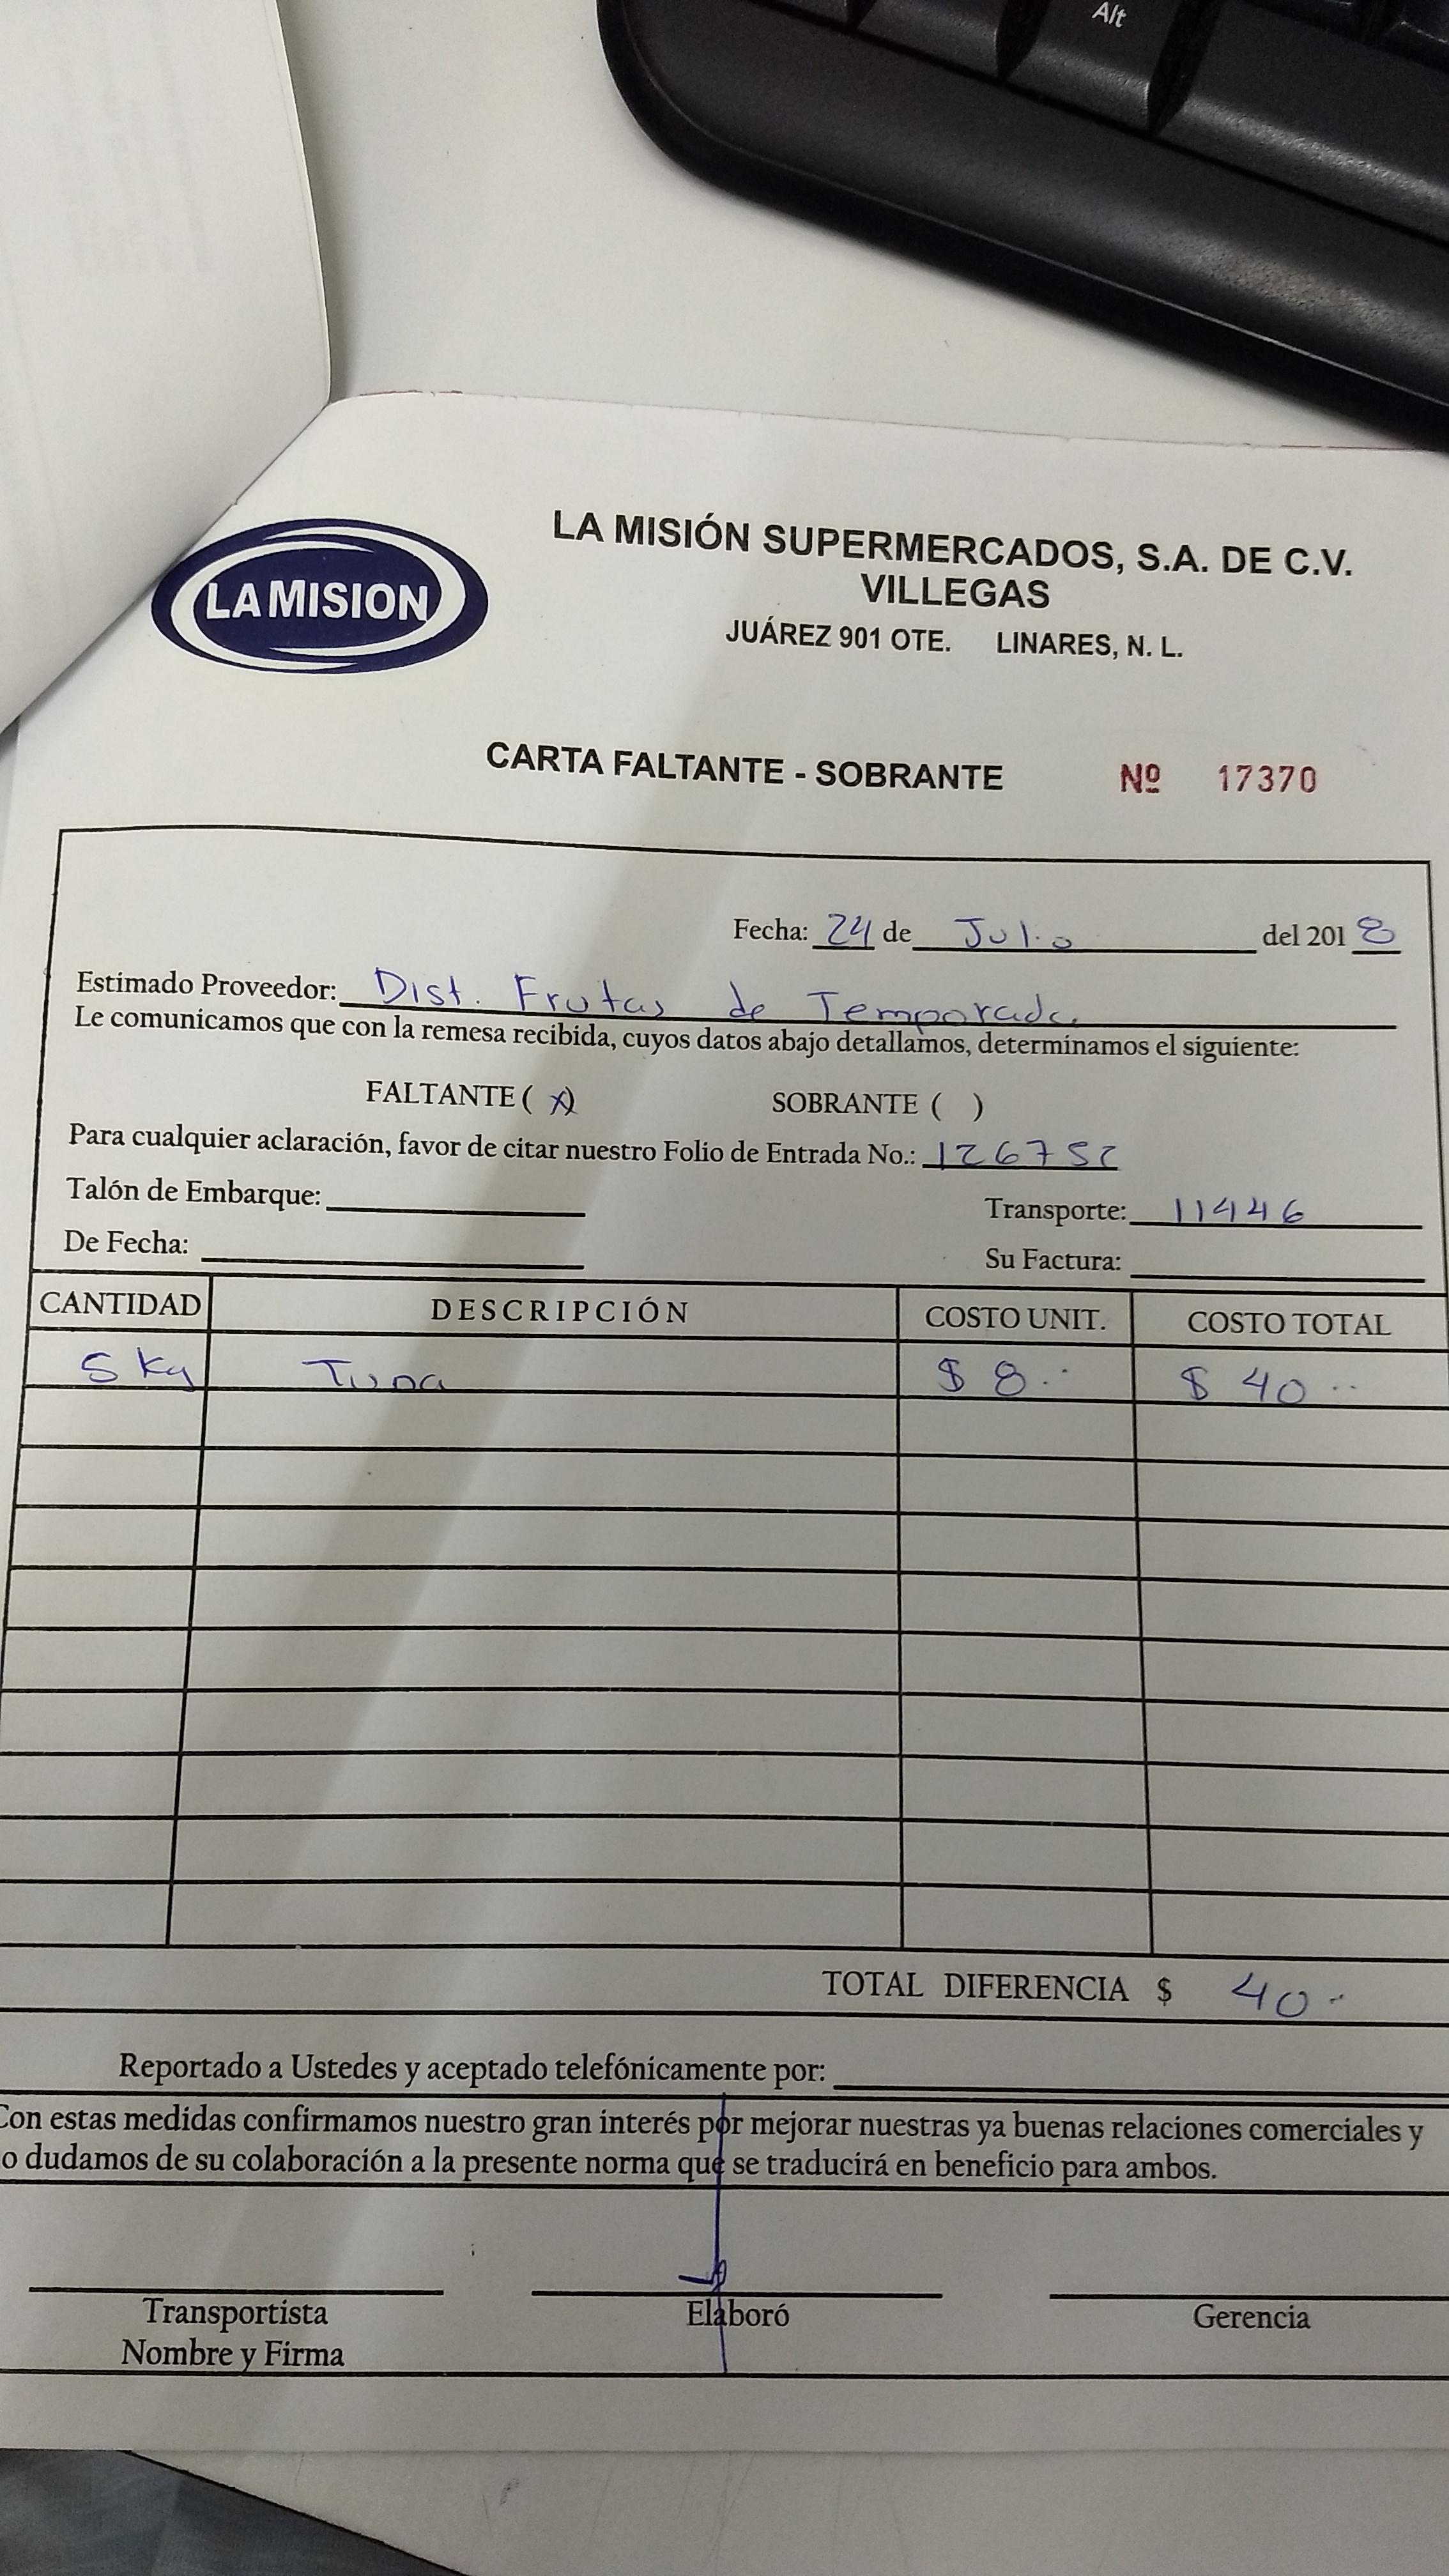 Alt
LA MISION
LA MISIÓN SUPERMERCADOS, S.A. DE C.V.
VILLEGAS
JUÁREZ 901 OTE. LINARES, N. L.
CARTA FALTANTE - SOBRANTE Nº 17370
Fecha: 24 de Julio del 2018
Estimado Proveedor: Dist. Frutas de Temporada
Le comunicamos que con la remesa recibida, cuyos datos abajo detallamos, determinamos el siguiente:
FALTANTE ( x ) SOBRANTE ( )
Para cualquier aclaración, favor de citar nuestro Folio de Entrada No.: 126752
Talón de Embarque: Transporte: 11446
De Fecha: Su Factura:
CANTIDAD DESCRIPCIÓN COSTO UNIT. COSTO TOTAL
5 Kg Tuna $ 8.- $ 40.-
TOTAL DIFERENCIA $ 40.-
Reportado a Ustedes y aceptado telefónicamente por:
Con estas medidas confirmamos nuestro gran interés por mejorar nuestras ya buenas relaciones comerciales y
o dudamos de su colaboración a la presente norma que se traducirá en beneficio para ambos.
Transportista Elaboró Gerencia
Nombre y Firma